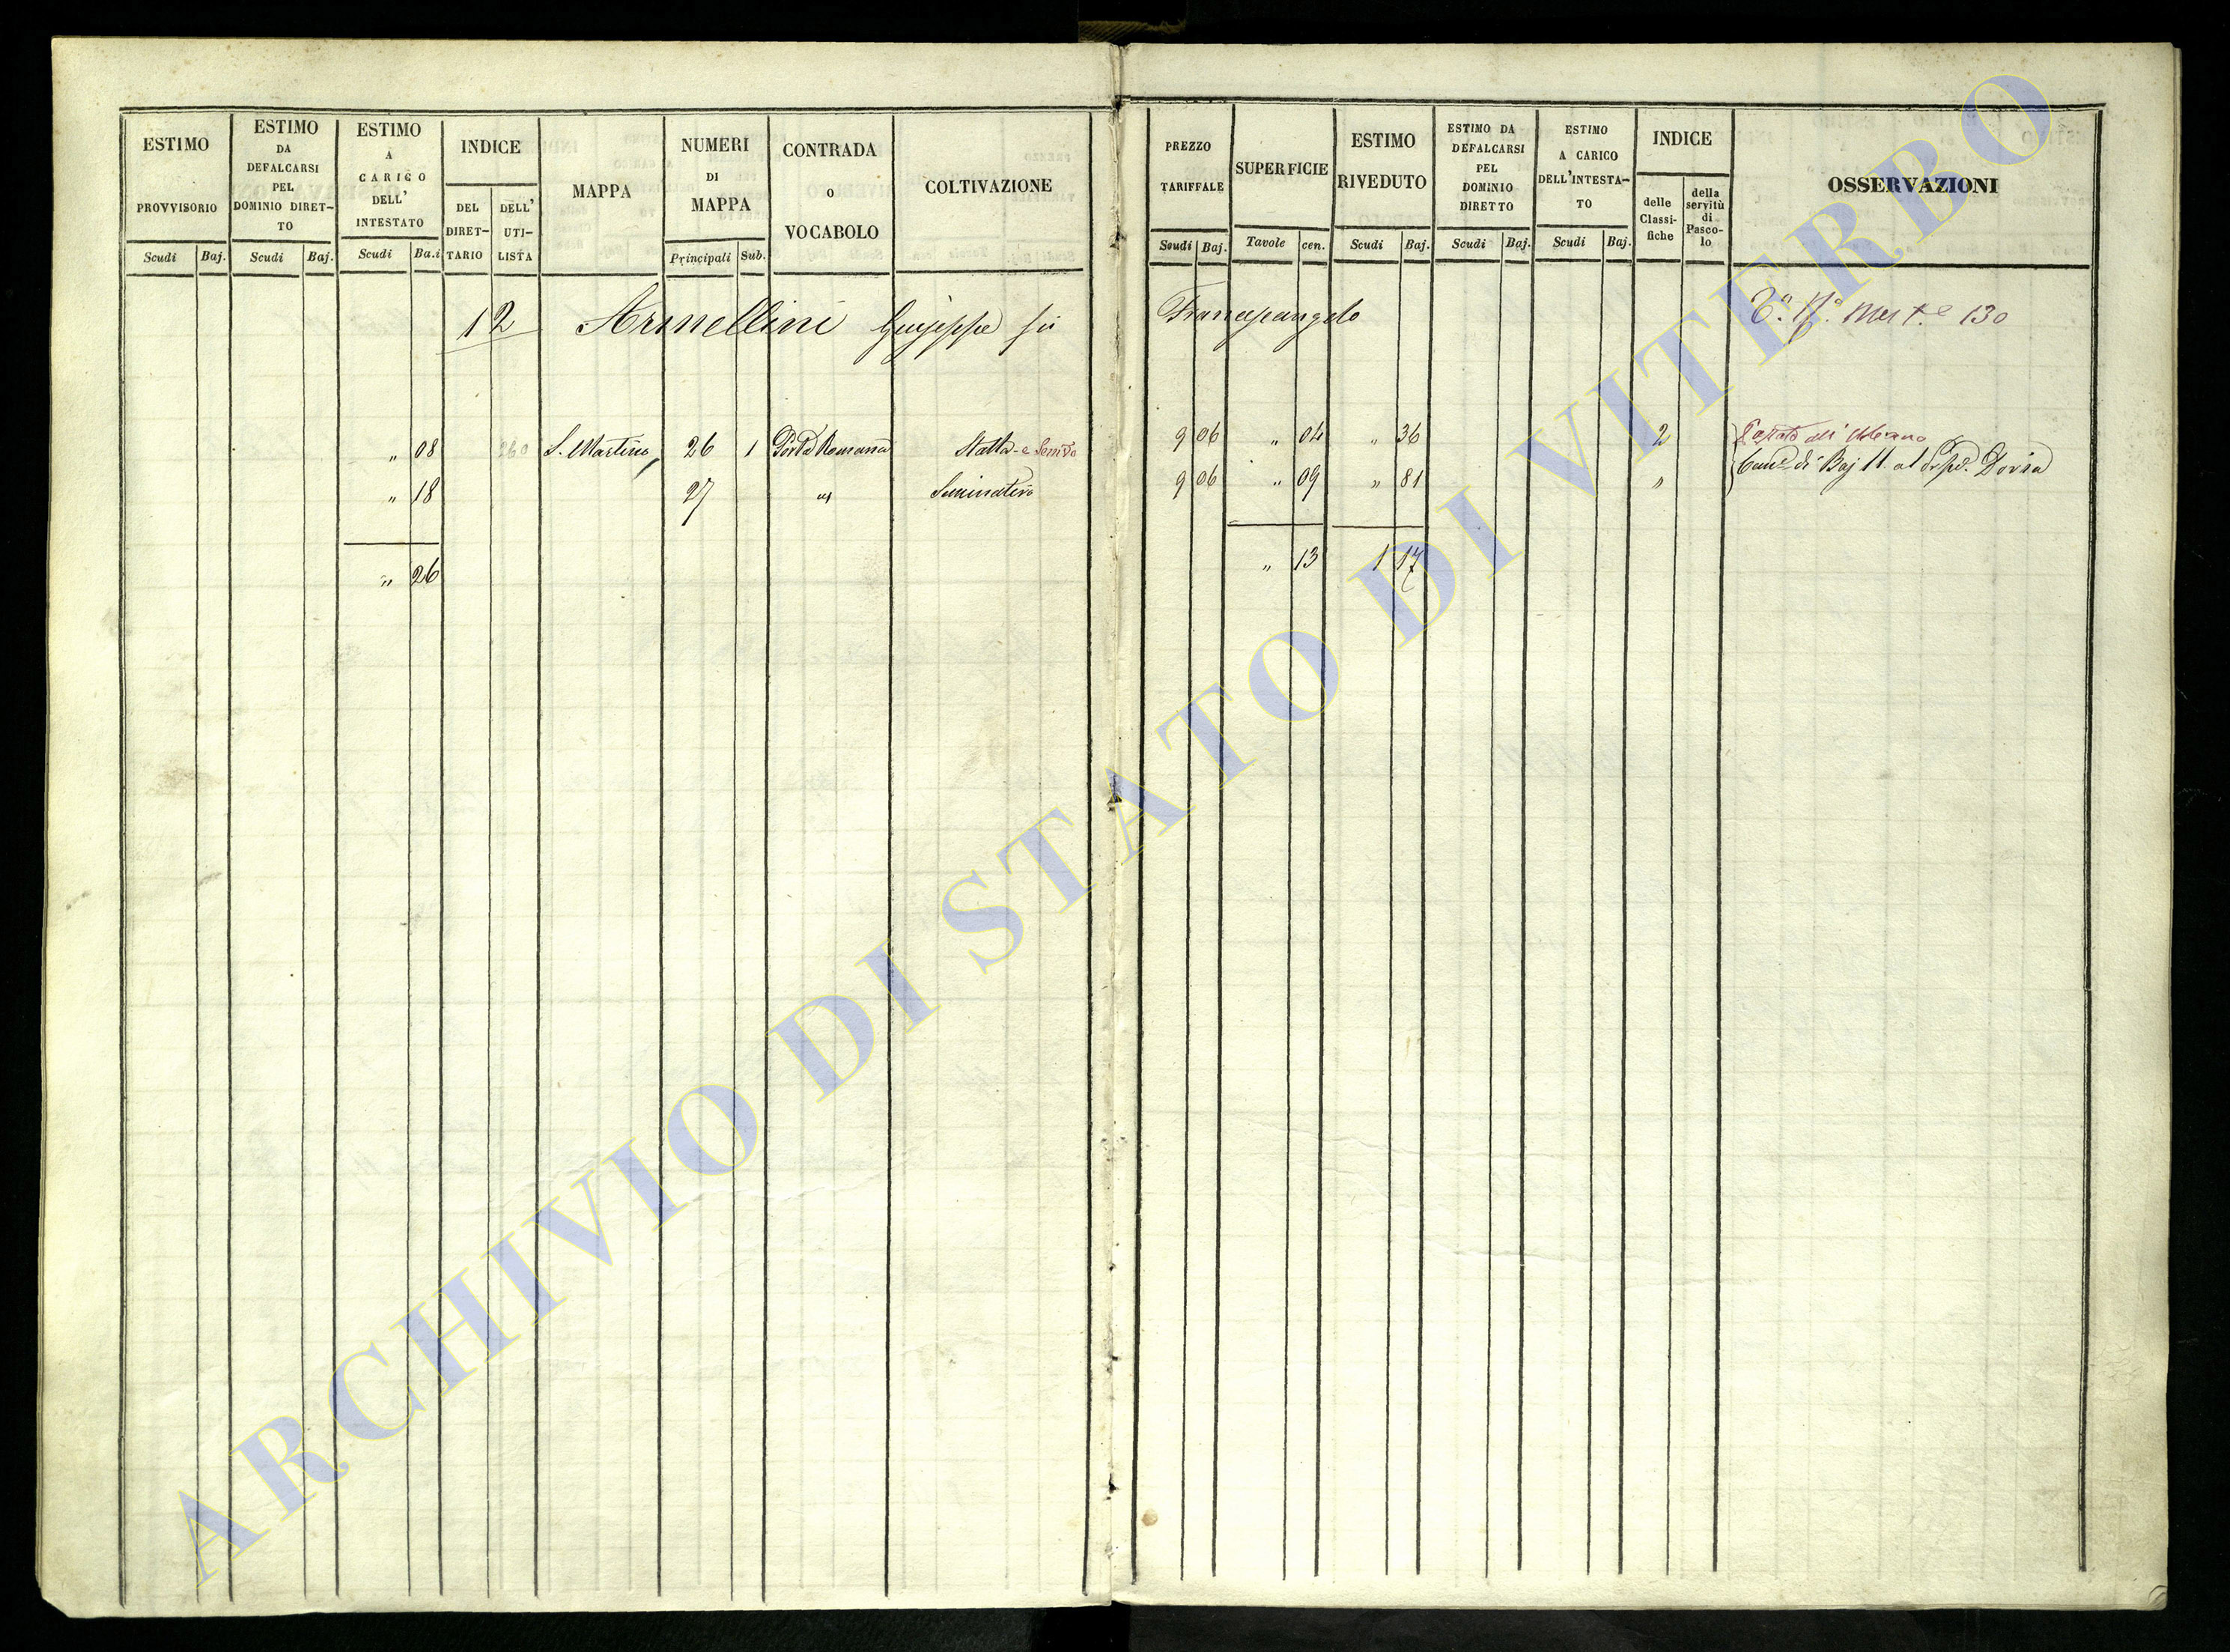 ESTIMO PROVVISORIO Scudi Baj.
ESTIMO DA DEFALCARSI PEL DOMINIO DIRET-TO Scudi Baj.
ESTIMO A CARICO DELL' INTESTATO Scudi Ba.i
INDICE DEL DIRET-TARIO DELL' UTI-LISTA
MAPPA
NUMERI DI MAPPA Principali Sub.
CONTRADA O VOCABOLO
COLTIVAZIONE
PREZZO TARIFFALE Scudi Baj.
SUPERFICIE Tavole cen.
ESTIMO RIVEDUTO Scudi Baj.
ESTIMO DA DEFALCARSI PEL DOMINIO DIRETTO Scudi Baj.
ESTIMO A CARICO DELL'INTESTA-TO Scudi Baj.
INDICE delle Classi-fiche della servitù di Pasco-lo
OSSERVAZIONI
12 Armellini Giuseppe fù Francapangelo 130
" 08 260 S. Martino 26 1 Porta Romana Stalla e 9 06 " 04 " 36 2
di Baj 11 al Doria
" 18 27 " Seminativo 9 06 " 09 " 81 "
" 26 " 13 1 17
ARCHIVIO DI STATO DI VITERBO